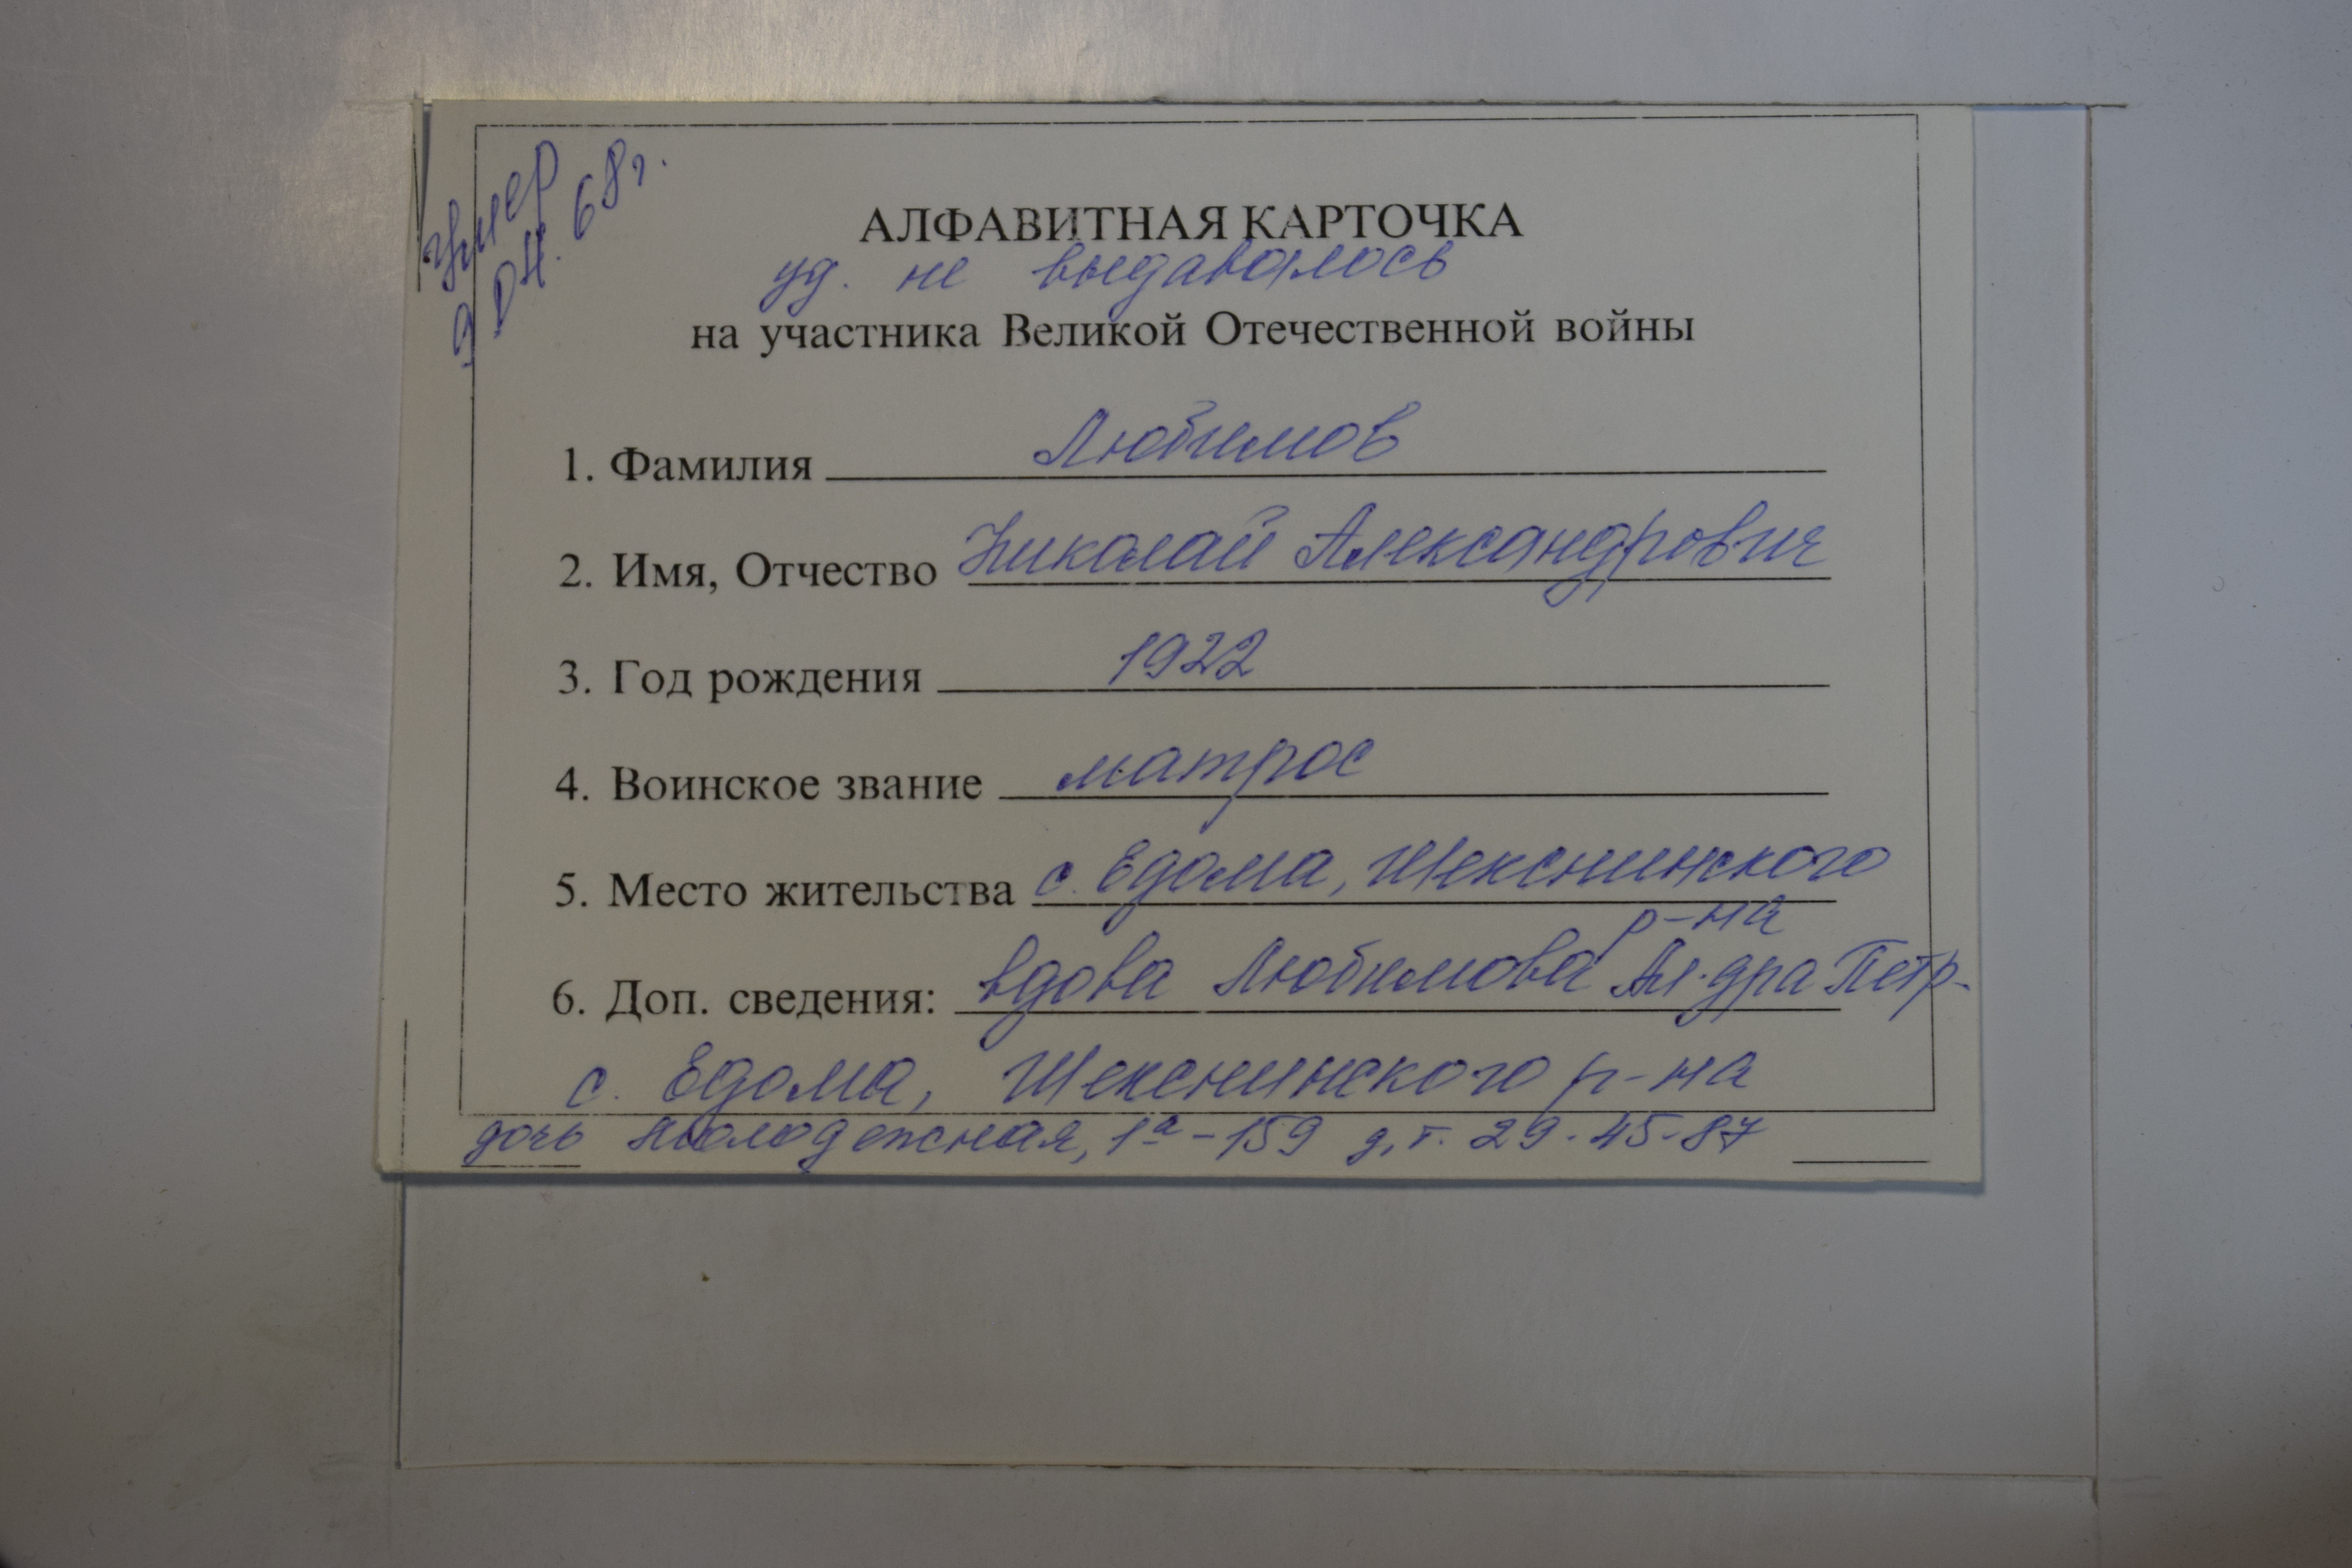 умер
9 04. 68г.
АЛФАВИТНАЯ КАРТОЧКА
уд. не выдавалось
на участника Великой Отечественной войны
1. Фамилия Любимов
2. Имя, Отчество Николай Александрович
3. Год рождения 1922
4. Воинское звание матрос
5. Место жительства с. Едома, Шекснинского
р-на
6. Доп. сведения: вдова Любимова Ал-дра Петр-
с. Едома, Шекснинского р-на
дочь Молодежная, 1а-159 д.т. 29-45-87